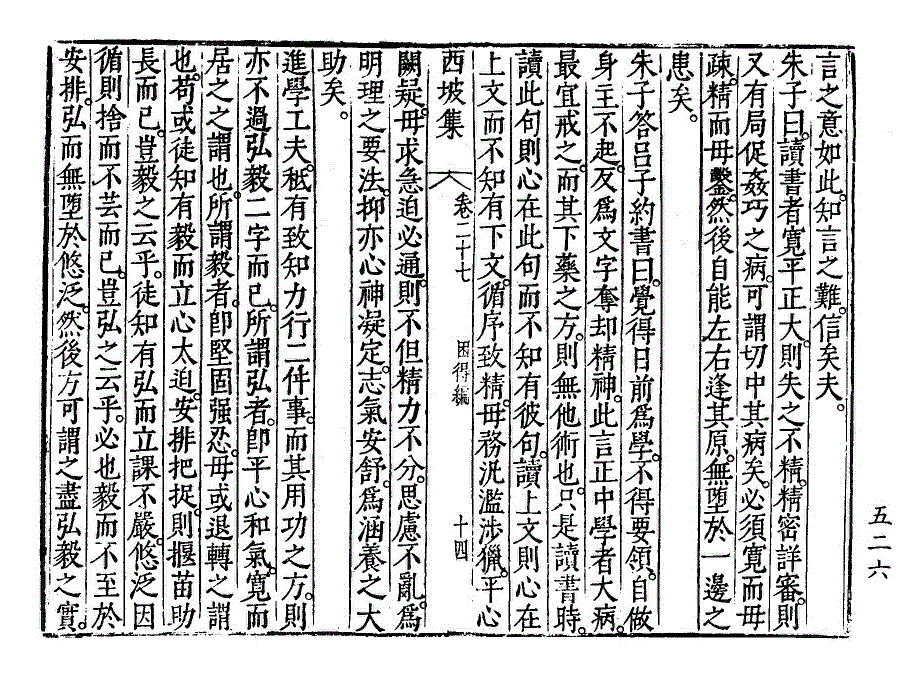 言之意如此。知言之難。信矣夫。
朱子曰。讀書者寬平正大。則失之不精。精密詳審。則
又有局促姦巧之病。可謂切中其病矣。必須寬而毋
疎。精而毋鑿。然後自能左右逢其原。無堕於一邊之
患矣。
朱子答呂子約書曰。覺得日前爲學。不得要領。自做
身主不起。反爲文字奪却精神。此言正中學者大病。
最宜戒之。而其下藥之方。則無他術也。只是讀書時。
讀此句則心在此句而不知有彼句。讀上文則心在
上文而不知有下文。循序致精。毋務汎濫涉獵。平心
西坡集 卷二十七 困得編 十四
闕疑。毋求急迫必通。則不但精力不分。思慮不亂。爲
明理之要法。抑亦心神凝定。志氣安舒。爲涵養之大
助矣。
進學工夫。秪有致知力行二件事。而其用功之方。則
亦不過弘毅二字而已。所謂弘者。卽平心和氣。寬而
居之之謂也。所謂毅者。卽堅固强忍。毋或退轉之謂
也。苟或徒知有毅而立心太迫。安排把捉。則揠苗助
長而已。豈毅之云乎。徒知有弘而立課不嚴。悠泛因
循則捨而不芸而已。豈弘之云乎。必也毅而不至於
安排。弘而無堕於悠泛。然後方可謂之盡弘毅之實。
五二六